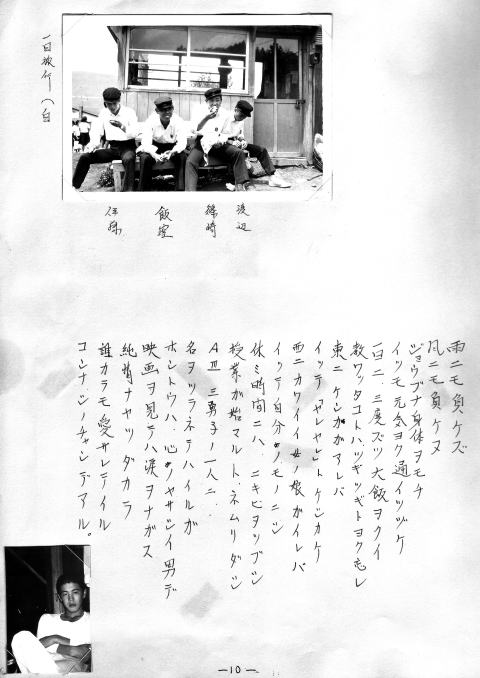 一日旅行(白
渡辺
篠崎
飯窪
伊藤
雨ニモ負ケズ
凡ニモ負ケヌ
ジョウブナ身体ヲモチ
イツモ元気ヨク過イツヅケ
一日ニ、三度ズツ大飯ヲクイ
教ワッタコトハツギツギトヨク忘レ
東ニケンカガアレバ
イッテヤレヤレトケシカケ
西ニカワイイ女ノ娘ガイレバ
イッテ自分ノモノニシ
休ミ時間ニハ、ニキビヲツブシ
授業ガ始マルト、ネムリダシ
AⅢ 三勇子ノ一人ニ
名ヲツラネテハイルガ
ホントウハ、心ノヤサシイ男デ
映画ヲ見テハ涙ヲナガス
純情ナヤツダカラ
誰カラモ愛サレテイル
コンナシノチャンデアル。
—10—